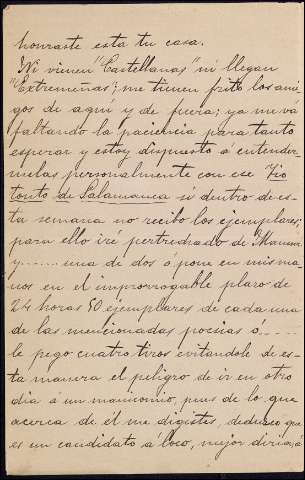 honraste esta tu casa.
Ni vienen "Castellanas" ni llegan
"Extremeñas"; me tienen frito los ami-
gos de aquí y de fuera; ya me va
faltando la paciencia para tanto
esperar y estoy dispuesto á entender
melas personalmente con ese Tio
tonto de Salamanca si dentro de es-
ta semana no recibo los ejemplares;
para ello iré pertrechado de Mauser
y....... una de dos ó pone en mis ma
nos en el improrrogable plazo de
24 horas 50 ejemplares de cada una
de las mencionadas poesias o.....
le pego cuatro tiros evitandole de es-
ta manera el peligro de ir en otro
dia á un manicomio, pues de lo que
acerca de él me digistes, deduzco que
es un candidato á loco, mejor diria á